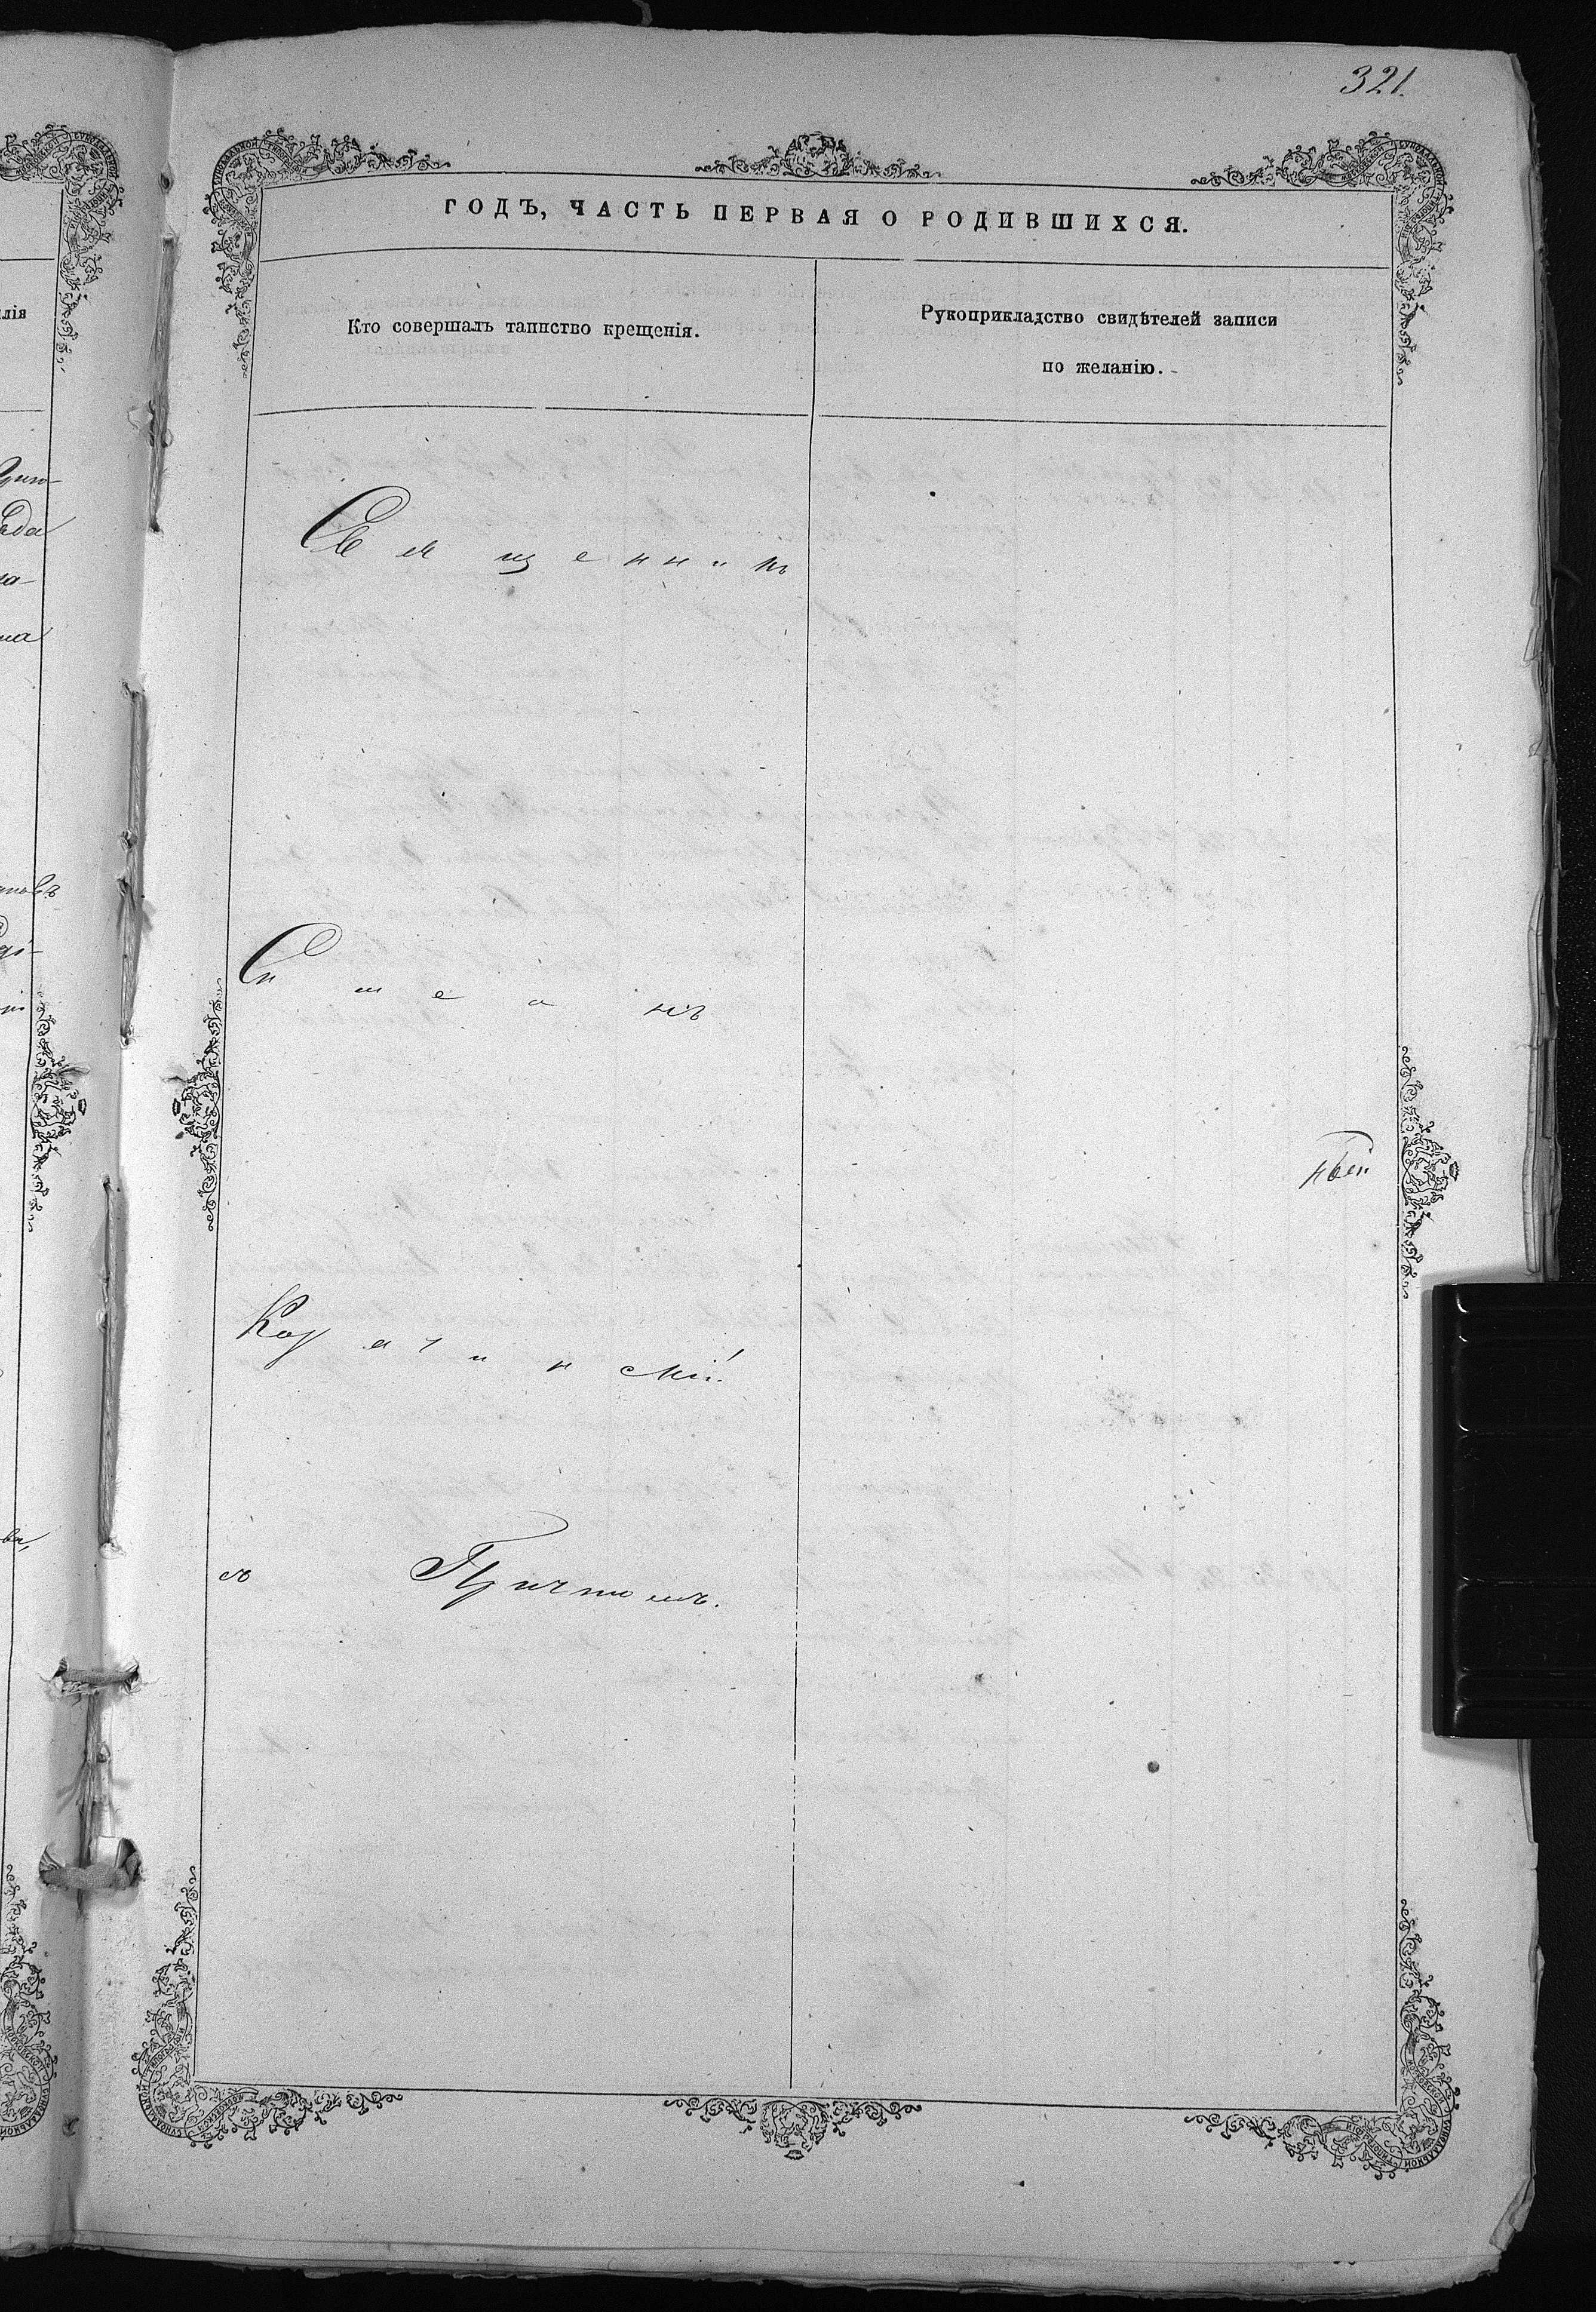 321.
ГОДЪ, ЧАСТЬ ПЕРВАЯ О РОДИВШИХСЯ.
Кто совершалъ таинство крещенія.
Рукоприкладство свидѣтелей записи
по желанію.
Священникъ
Стеанъ
съ Причтомъ.